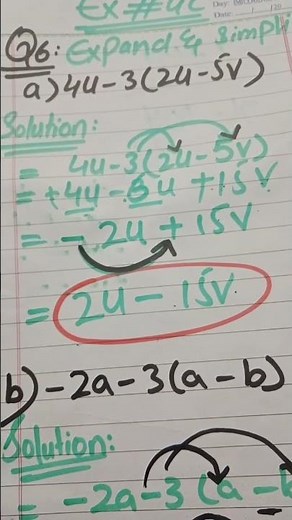 Ex # 4C
Date:
Q6: Expand & Simpli
a) 4u-3(2u-5v)
Solution:
= 4u-3(2u-5v)
= +4u-6u+15v
= -2u+15v
= 2u-15v
b) -2a-3(a-b)
Solution:
= -2a-3(a-b